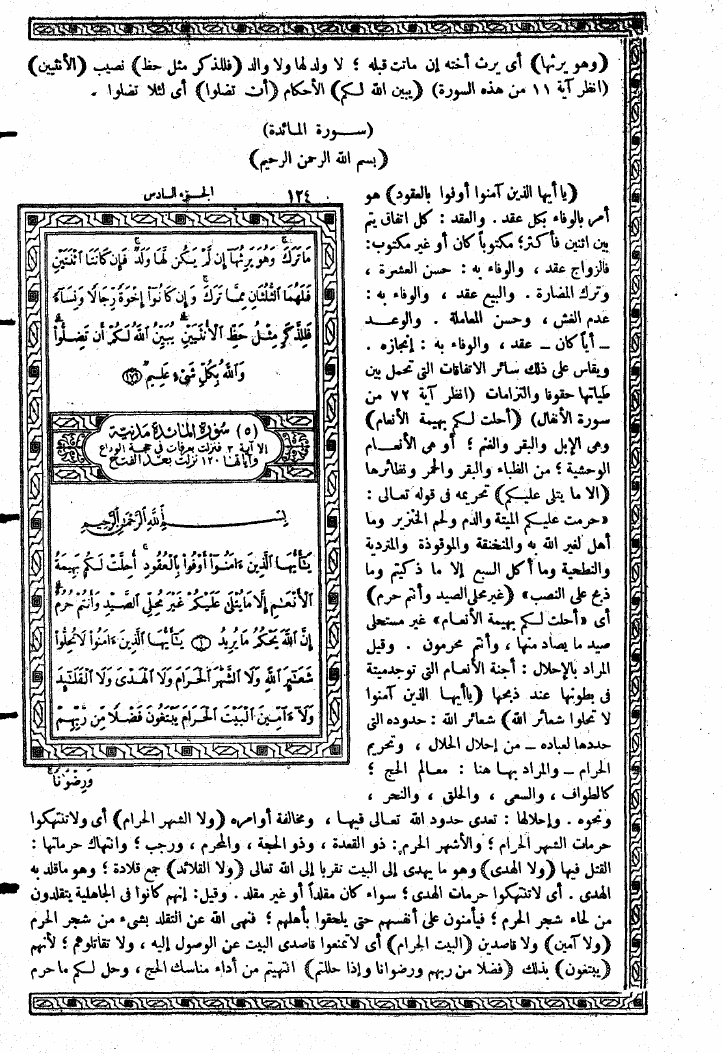 (وهو يرثها) أى يرث أخته إن ماتت قبله ؛ لا ولد لها ولا والد (فللذكر مثل حظ) نصيب (الأنثيين)
(انظر آية ١١ من هذه السورة) (يبين الله لكم) الأحكام (أن تضلوا) أى لئلا تضلوا .
(سورة المائدة)
(بسم الله الرحمن الرحيم)
(يا أيها الذين آمنوا أوفوا بالعقود) هو
أمر بالوفاء بكل عقد . والعقد : كل اتفاق يتم
بين اثنين فأكثر؛ مكتوباً كان أو غير مكتوب:
فالزواج عقد ، والوفاء به : حسن العشرة ،
وترك المضارة . والبيع عقد ، والوفاء به :
عدم الغش ، وحسن المعاملة . والوعد
ـ أياً كان ـ عقد ، والوفاء به : إنجازه .
ويقاس على ذلك سائر الاتفاقات التى تحمل بين
طياتها حقوقا والتزامات (انظر آية ٧٢ من
سورة الأنفال) (أحلت لكم بهيمة الأنعام)
وهى الإبل والبقر والغنم ؛ أو هى الأنعام
الوحشية ؛ من الظباء والبقر والحمر ونظائرها
(إلا ما يتلى عليكم) تحريمه فى قوله تعالى :
«حرمت عليكم الميتة والدم ولحم الخنزير وما
أهل لغير الله به والمنخنقة والموقوذة والمتردية
والنطيحة وما أكل السبع إلا ما ذكيتم وما
ذبح على النصب» (غير محلى الصيد وأنتم حرم)
أى «أحلت لكم بهيمة الأنعام» غير مستحلى
صيد ما يصاد منها ، وأنتم محرمون . وقيل
المراد بالإحلال : أجنة الأنعام التى توجد ميتة
فى بطونها عند ذبحها (يا أيها الذين آمنوا
لا تحلوا شعائر الله) شعائر الله : حدوده التى
حددها لعباده ـ من إحلال الحلال ، وتحريم
الحرام ـ والمراد بها هنا : معالم الحج ؛
كالطواف ، والسعى ، والحلق ، والنحر ،
الجزء السادس ١٢٤
مَا تَرَكَ وَهُوَ يَرِثُهَا إِن لَّمْ يَكُن لَّهَا وَلَدٌ فَإِن كَانَتَا اثْنَتَيْنِ
فَلَهُمَا الثُّلُثَانِ مِمَّا تَرَكَ وَإِن كَانُوا إِخْوَةً رِّجَالًا وَنِسَاءً
فَلِلذَّكَرِ مِثْلُ حَظِّ الْأُنثَيَيْنِ يُبَيِّنُ اللَّهُ لَكُمْ أَن تَضِلُّوا
وَاللَّهُ بِكُلِّ شَىْءٍ عَلِيمٌ ١٧٦
(٥) سورة المائدة مدنية
إلا آية ٣ فنزلت بعرفات فى حجة الوداع
وآياتها ١٢٠ نزلت بعد الفتح
بِسْمِ اللَّهِ الرَّحْمَٰنِ الرَّحِيمِ
يَٰأَيُّهَا الَّذِينَ ءَامَنُوا أَوْفُوا بِالْعُقُودِ أُحِلَّتْ لَكُم بَهِيمَةُ
الْأَنْعَٰمِ إِلَّا مَا يُتْلَىٰ عَلَيْكُمْ غَيْرَ مُحِلِّى الصَّيْدِ وَأَنتُمْ حُرُمٌ
إِنَّ اللَّهَ يَحْكُمُ مَا يُرِيدُ ١ يَٰأَيُّهَا الَّذِينَ ءَامَنُوا لَا تُحِلُّوا
شَعَٰئِرَ اللَّهِ وَلَا الشَّهْرَ الْحَرَامَ وَلَا الْهَدْىَ وَلَا الْقَلَٰئِدَ
وَلَا ءَامِّينَ الْبَيْتَ الْحَرَامَ يَبْتَغُونَ فَضْلًا مِّن رَّبِّهِمْ
وَرِضْوَٰنًا
ونحوه . وإحلالها : تعدى حدود الله تعالى فيها ، ومخالفة أوامره (ولا الشهر الحرام) أى ولا تنتهكوا
حرمات الشهر الحرام ؛ والأشهر الحرم : ذو القعدة ، وذو الحجة ، والمحرم ، ورجب ؛ وانتهاك حرماتها :
القتل فيها (ولا الهدى) وهو ما يهدى إلى البيت تقربا إلى الله تعالى (ولا القلائد) جمع قلادة ؛ وهو ما قلد به
الهدى . أى لا تنتهكوا حرمات الهدى ؛ سواء كان مقلداً أو غير مقلد . وقيل: إنهم كانوا فى الجاهلية يتقلدون
من لحاء شجر الحرم ؛ فيأمنون على أنفسهم حتى يلحقوا بأهلهم ؛ فنهى الله عن التقلد بشىء من شجر الحرم
(ولا آمين) ولا قاصدين (البيت الحرام) أى لا تمنعوا قاصدى البيت عن الوصول إليه ، ولا تقاتلوهم ؛ لأنهم
(يبتغون) بذلك (فضلا من ربهم ورضوانا وإذا حللتم) انتهيتم من أداء مناسك الحج ، وحل لكم ما حرم